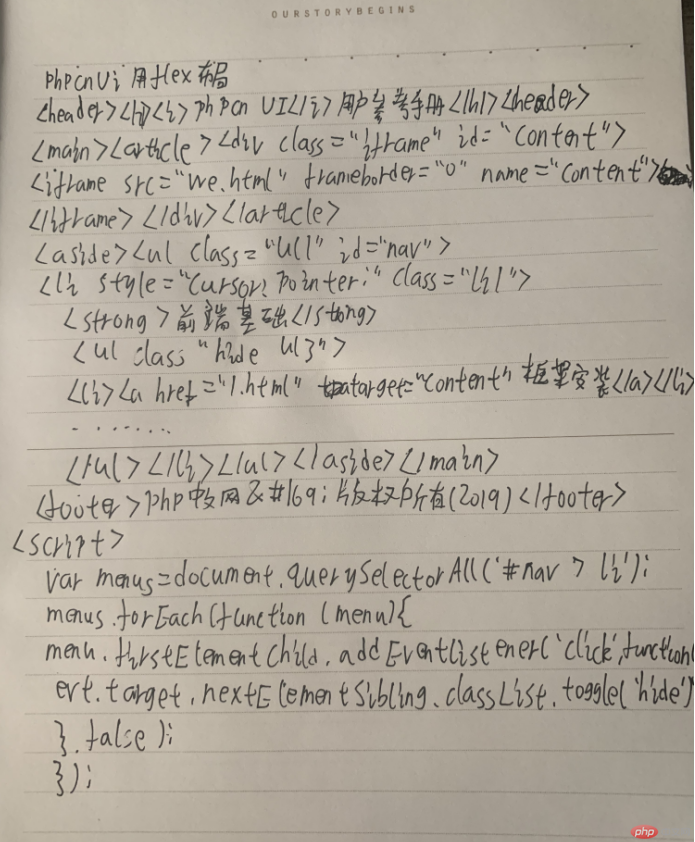 OURSTORYBEGINS
phpcnUi 用flex布局
<header><h1><i>phpcn UI</i>用户参考手册</h1><header>
<main><article><div class="iframe" id="Content">
<iframe src="we.html" frameborder="0" name="Content">
</iframe></div></article>
<aside><ul class="ul1" id="nav">
<li style="cursor: pointer;" class="li1">
<strong>前端基础</strong>
<ul class "hide ul3">
<li><a href="1.html" target="Content" 框架安装</a></li>
........
</ul></li></ul></aside></main>
<footer>php中文网&#169;版权所有(2019)</footer>
<script>
var menus=document.querySelectorAll('#nav > li');
menus.forEach(function (menu){
menu.firstElementChild.addEventListener('click',function(
evt.target.nextElementSibling.classList.toggle('hide')
}.false);
});
php